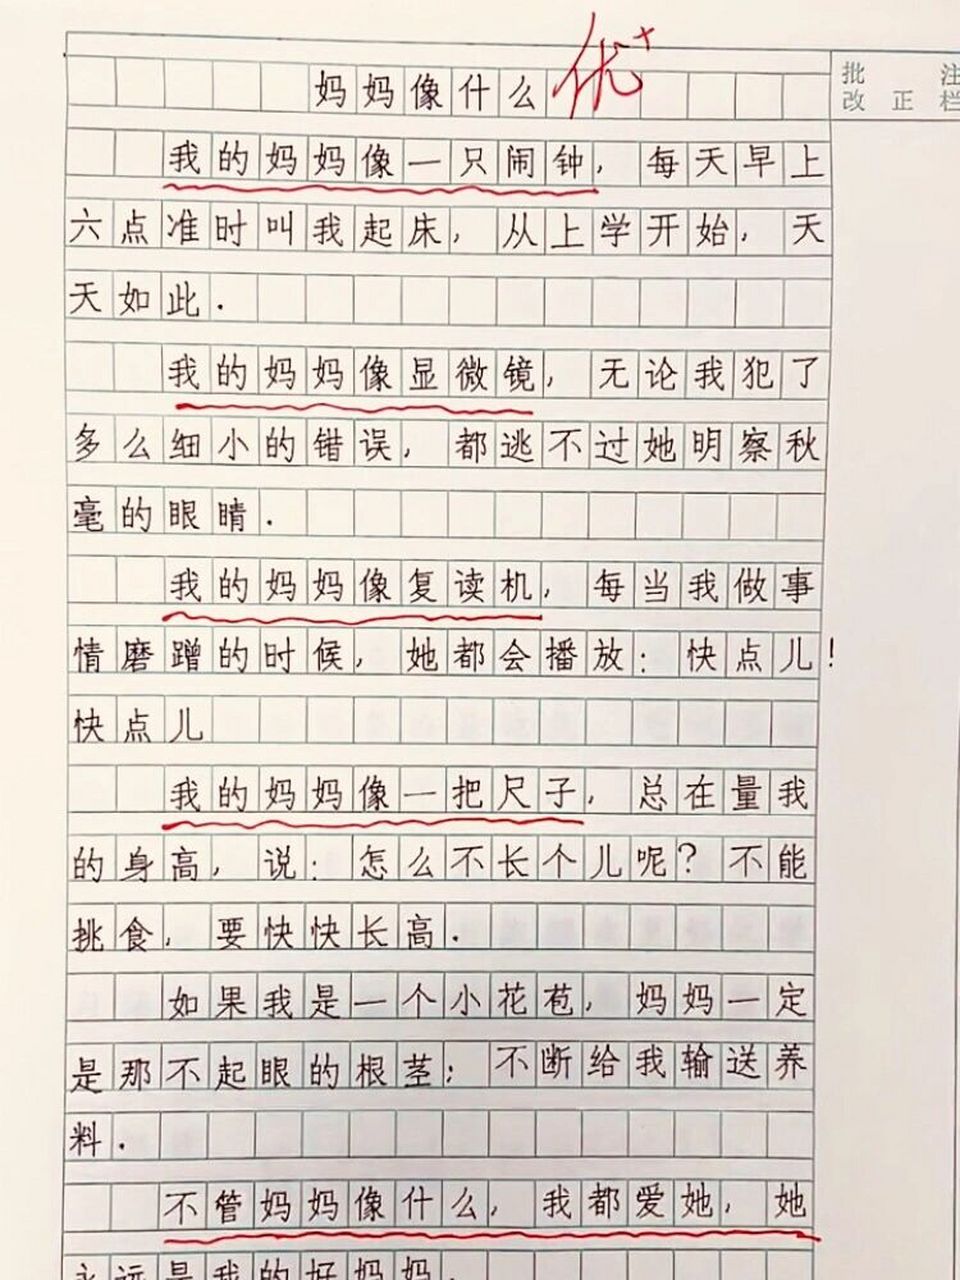 妈妈像什么 优+
批 注
改 正 栏
我的妈妈像一只闹钟，每天早上
六点准时叫我起床，从上学开始，天
天如此.
我的妈妈像显微镜，无论我犯了
多么细小的错误，都逃不过她明察秋
毫的眼睛.
我的妈妈像复读机，每当我做事
情磨蹭的时候，她都会播放：快点儿！
快点儿
我的妈妈像一把尺子，总在量我
的身高，说：怎么不长个儿呢？不能
挑食，要快快长高.
如果我是一个小花苞，妈妈一定
是那不起眼的根茎；不断给我输送养
料.
不管妈妈像什么，我都爱她，她
永远是我的好妈妈.